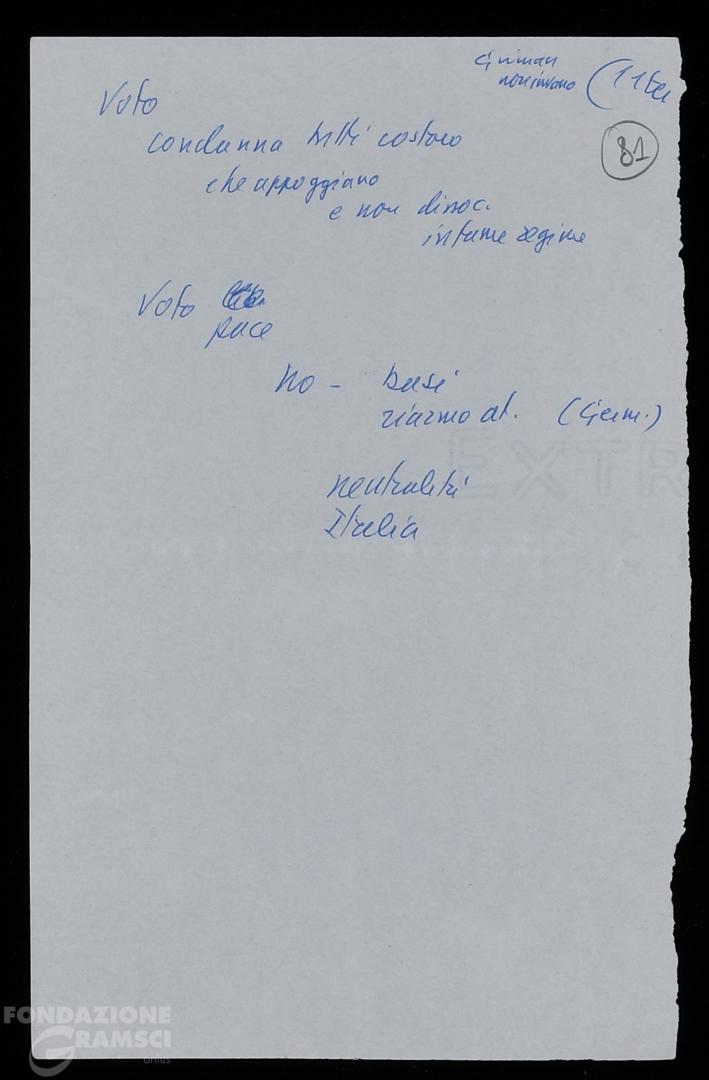 (11
81
Voto
condanna tutti costoro
che appoggiano
e non dissoc.
infame regime
Voto
pace
no - basi
riarmo at. (Germ.)
EXTR
neutralità
Italia
FONDAZIONE
GRAMSCI
onlus